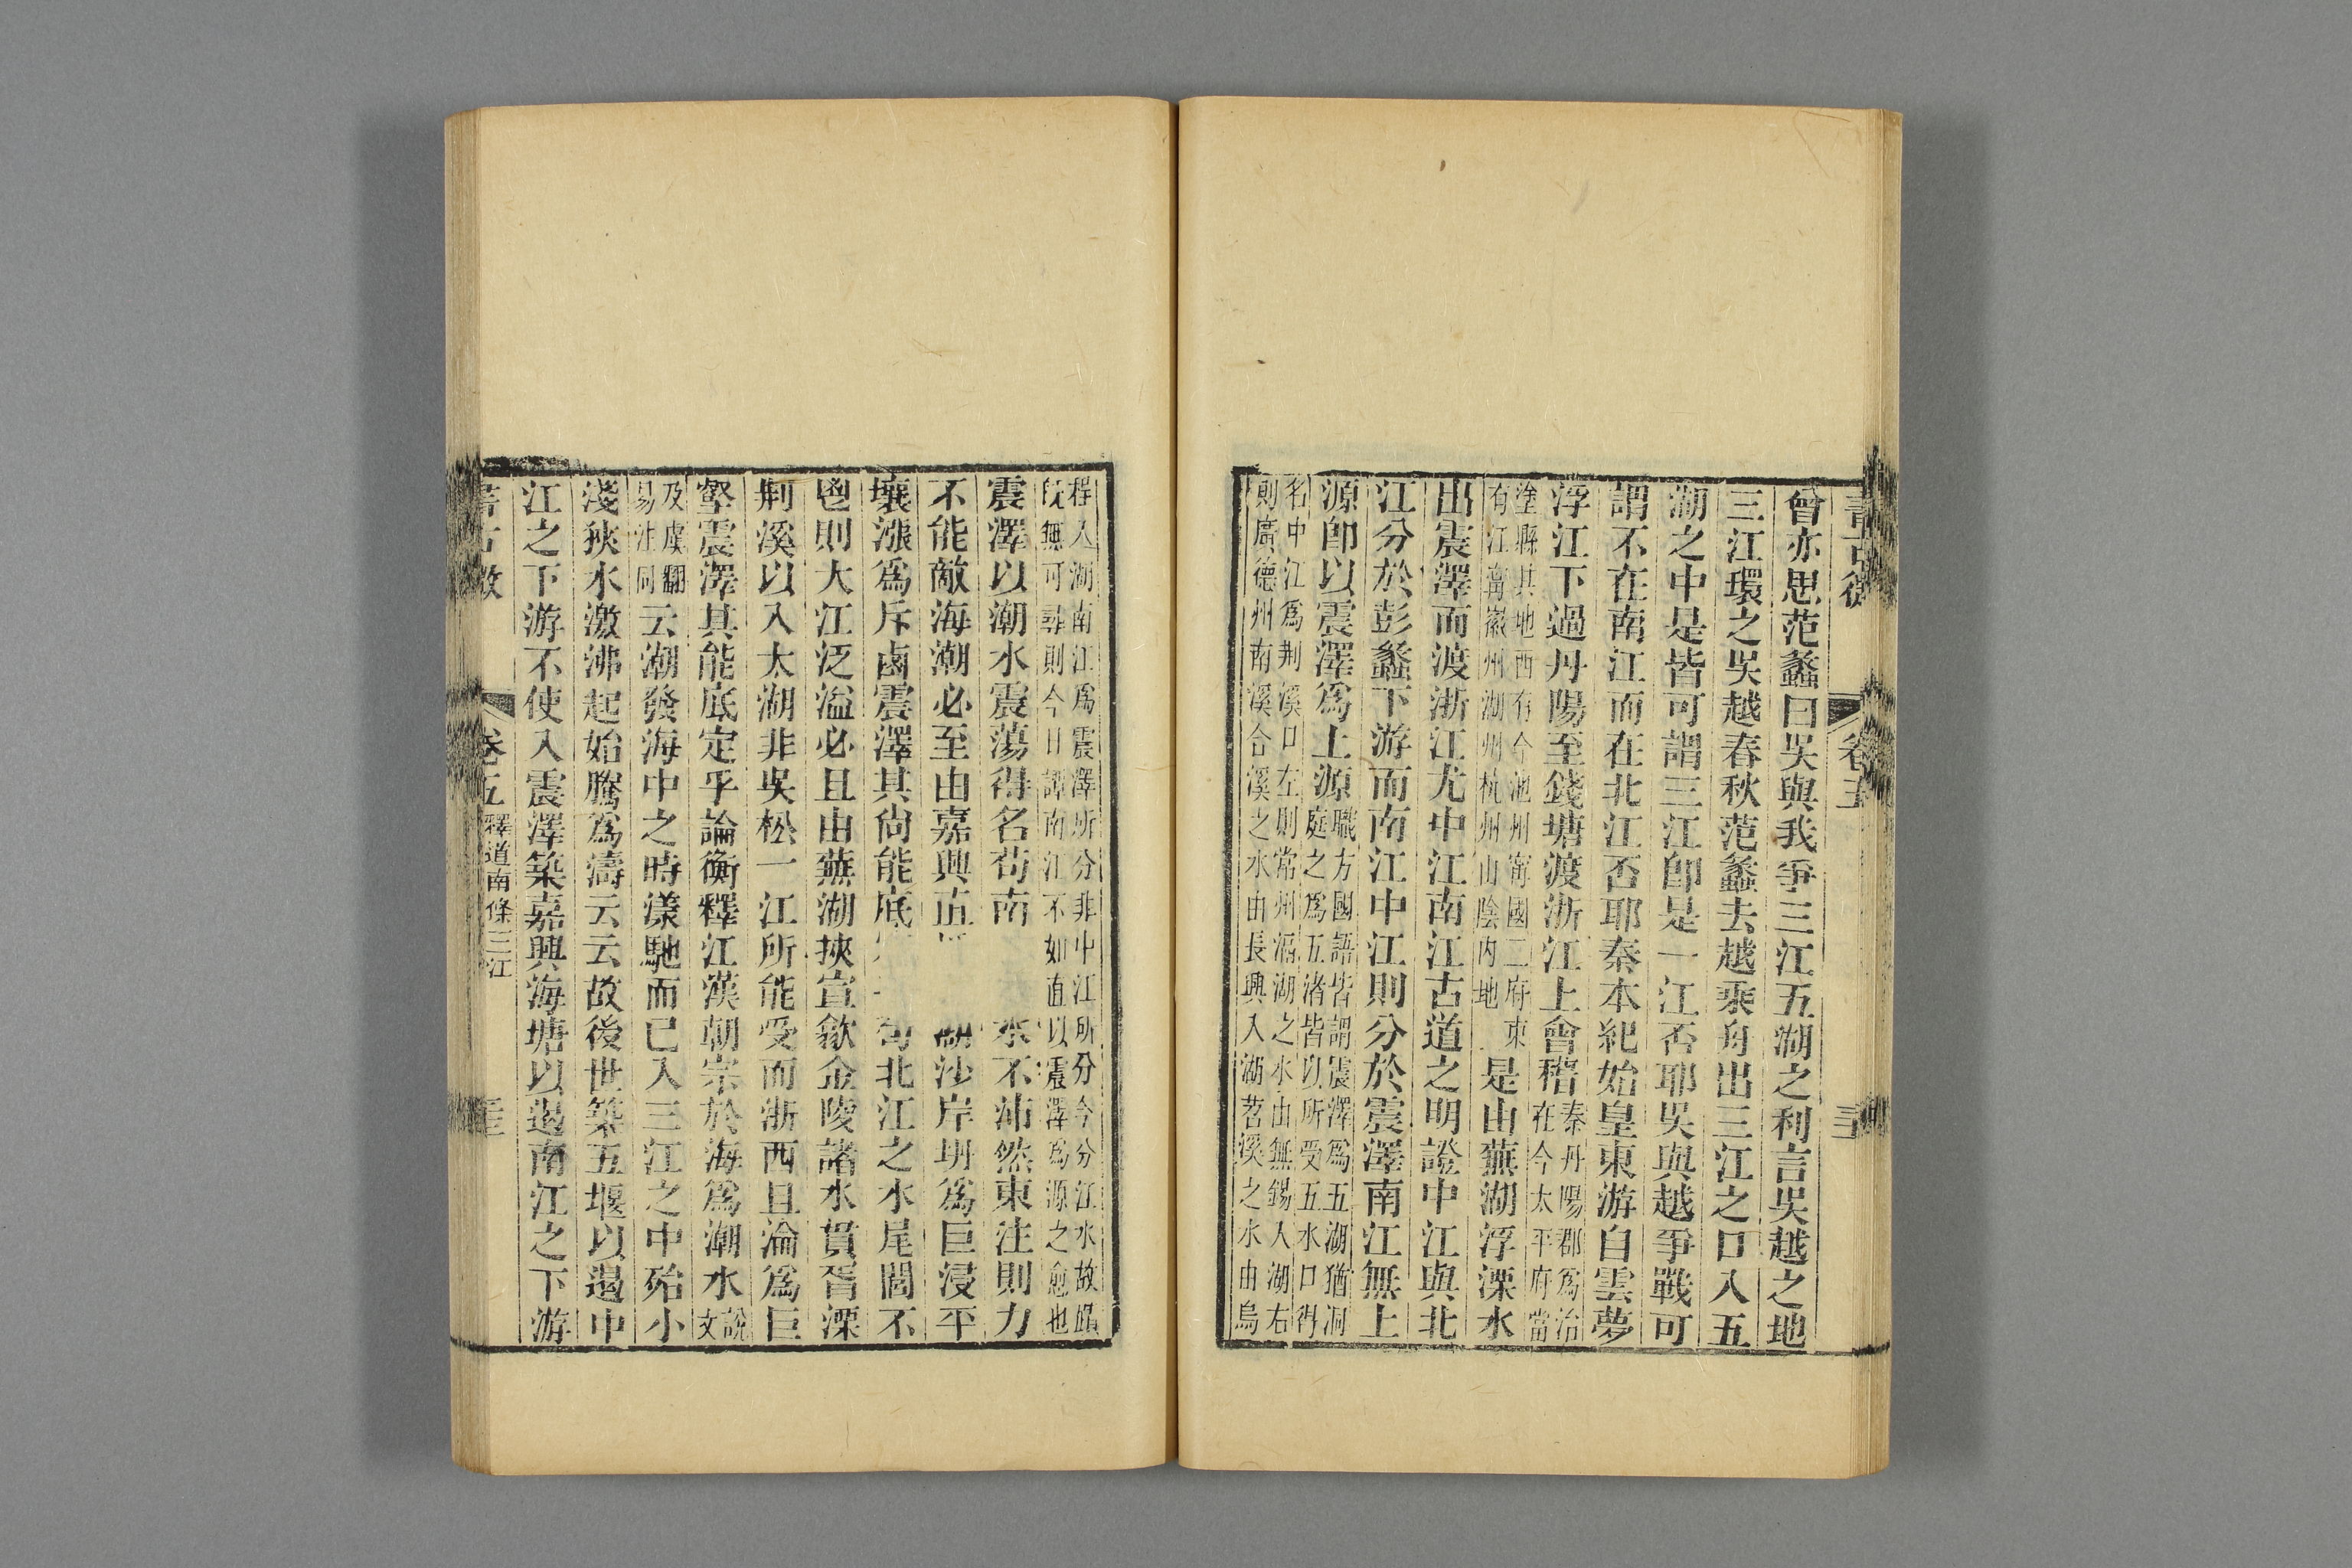 書古微 卷五
曾亦思范蠡曰吳與我爭三江五湖之利言吳越之地
三江環之吳越春秋范蠡去越乘舟出三江之口入五
湖之中是皆可謂三江卽是一江否耶吳與越爭戰可
謂不在南江而在北江否耶秦本紀始皇東游自雲夢
浮江下過丹陽至錢塘渡浙江上會稽秦丹陽郡爲治在今太平府當
塗縣其地西有今池州甯國二府東有江甯徽州湖州杭州山陰內地是由蕪湖浮溧水
出震澤而渡浙江尤中江南江古道之明證中江與北
江分於彭蠡下游而南江中江則分於震澤南江無上
源卽以震澤爲上源職方國語皆謂震澤爲五湖猶洞庭之爲五渚皆以所受五水口得
名中江爲荆溪口左則常州滆湖之水由無錫入湖右則廣德州南溪合溪之水由長興入湖苕溪之水由烏
程入湖南江爲震澤所分非中江所分今分江水故蹟旣無可尋則今日譚南江不如直以震澤爲源之愈也
震澤以潮水震蕩得名苟南水不沛然東注則力
不能敵海潮必至由嘉興 湖沙岸坍爲巨浸平
壤漲爲斥鹵震澤其尙能底 苟北江之水尾閭不
鬯則大江泛溢必且由蕪湖挾宣歙金陵諸水貫胥溧
荆溪以入太湖非吳松一江所能受而浙西且淪爲巨
壑震澤其能底定乎論衡釋江漢朝宗於海爲潮水說文
及虞翻易注同云潮發海中之時漾馳而已入三江之中殆小
淺狹水激沸起始騰爲濤云云故後世築五堰以遏中
江之下游不使入震澤築嘉興海塘以遏南江之下游
卷五 釋道南條三江